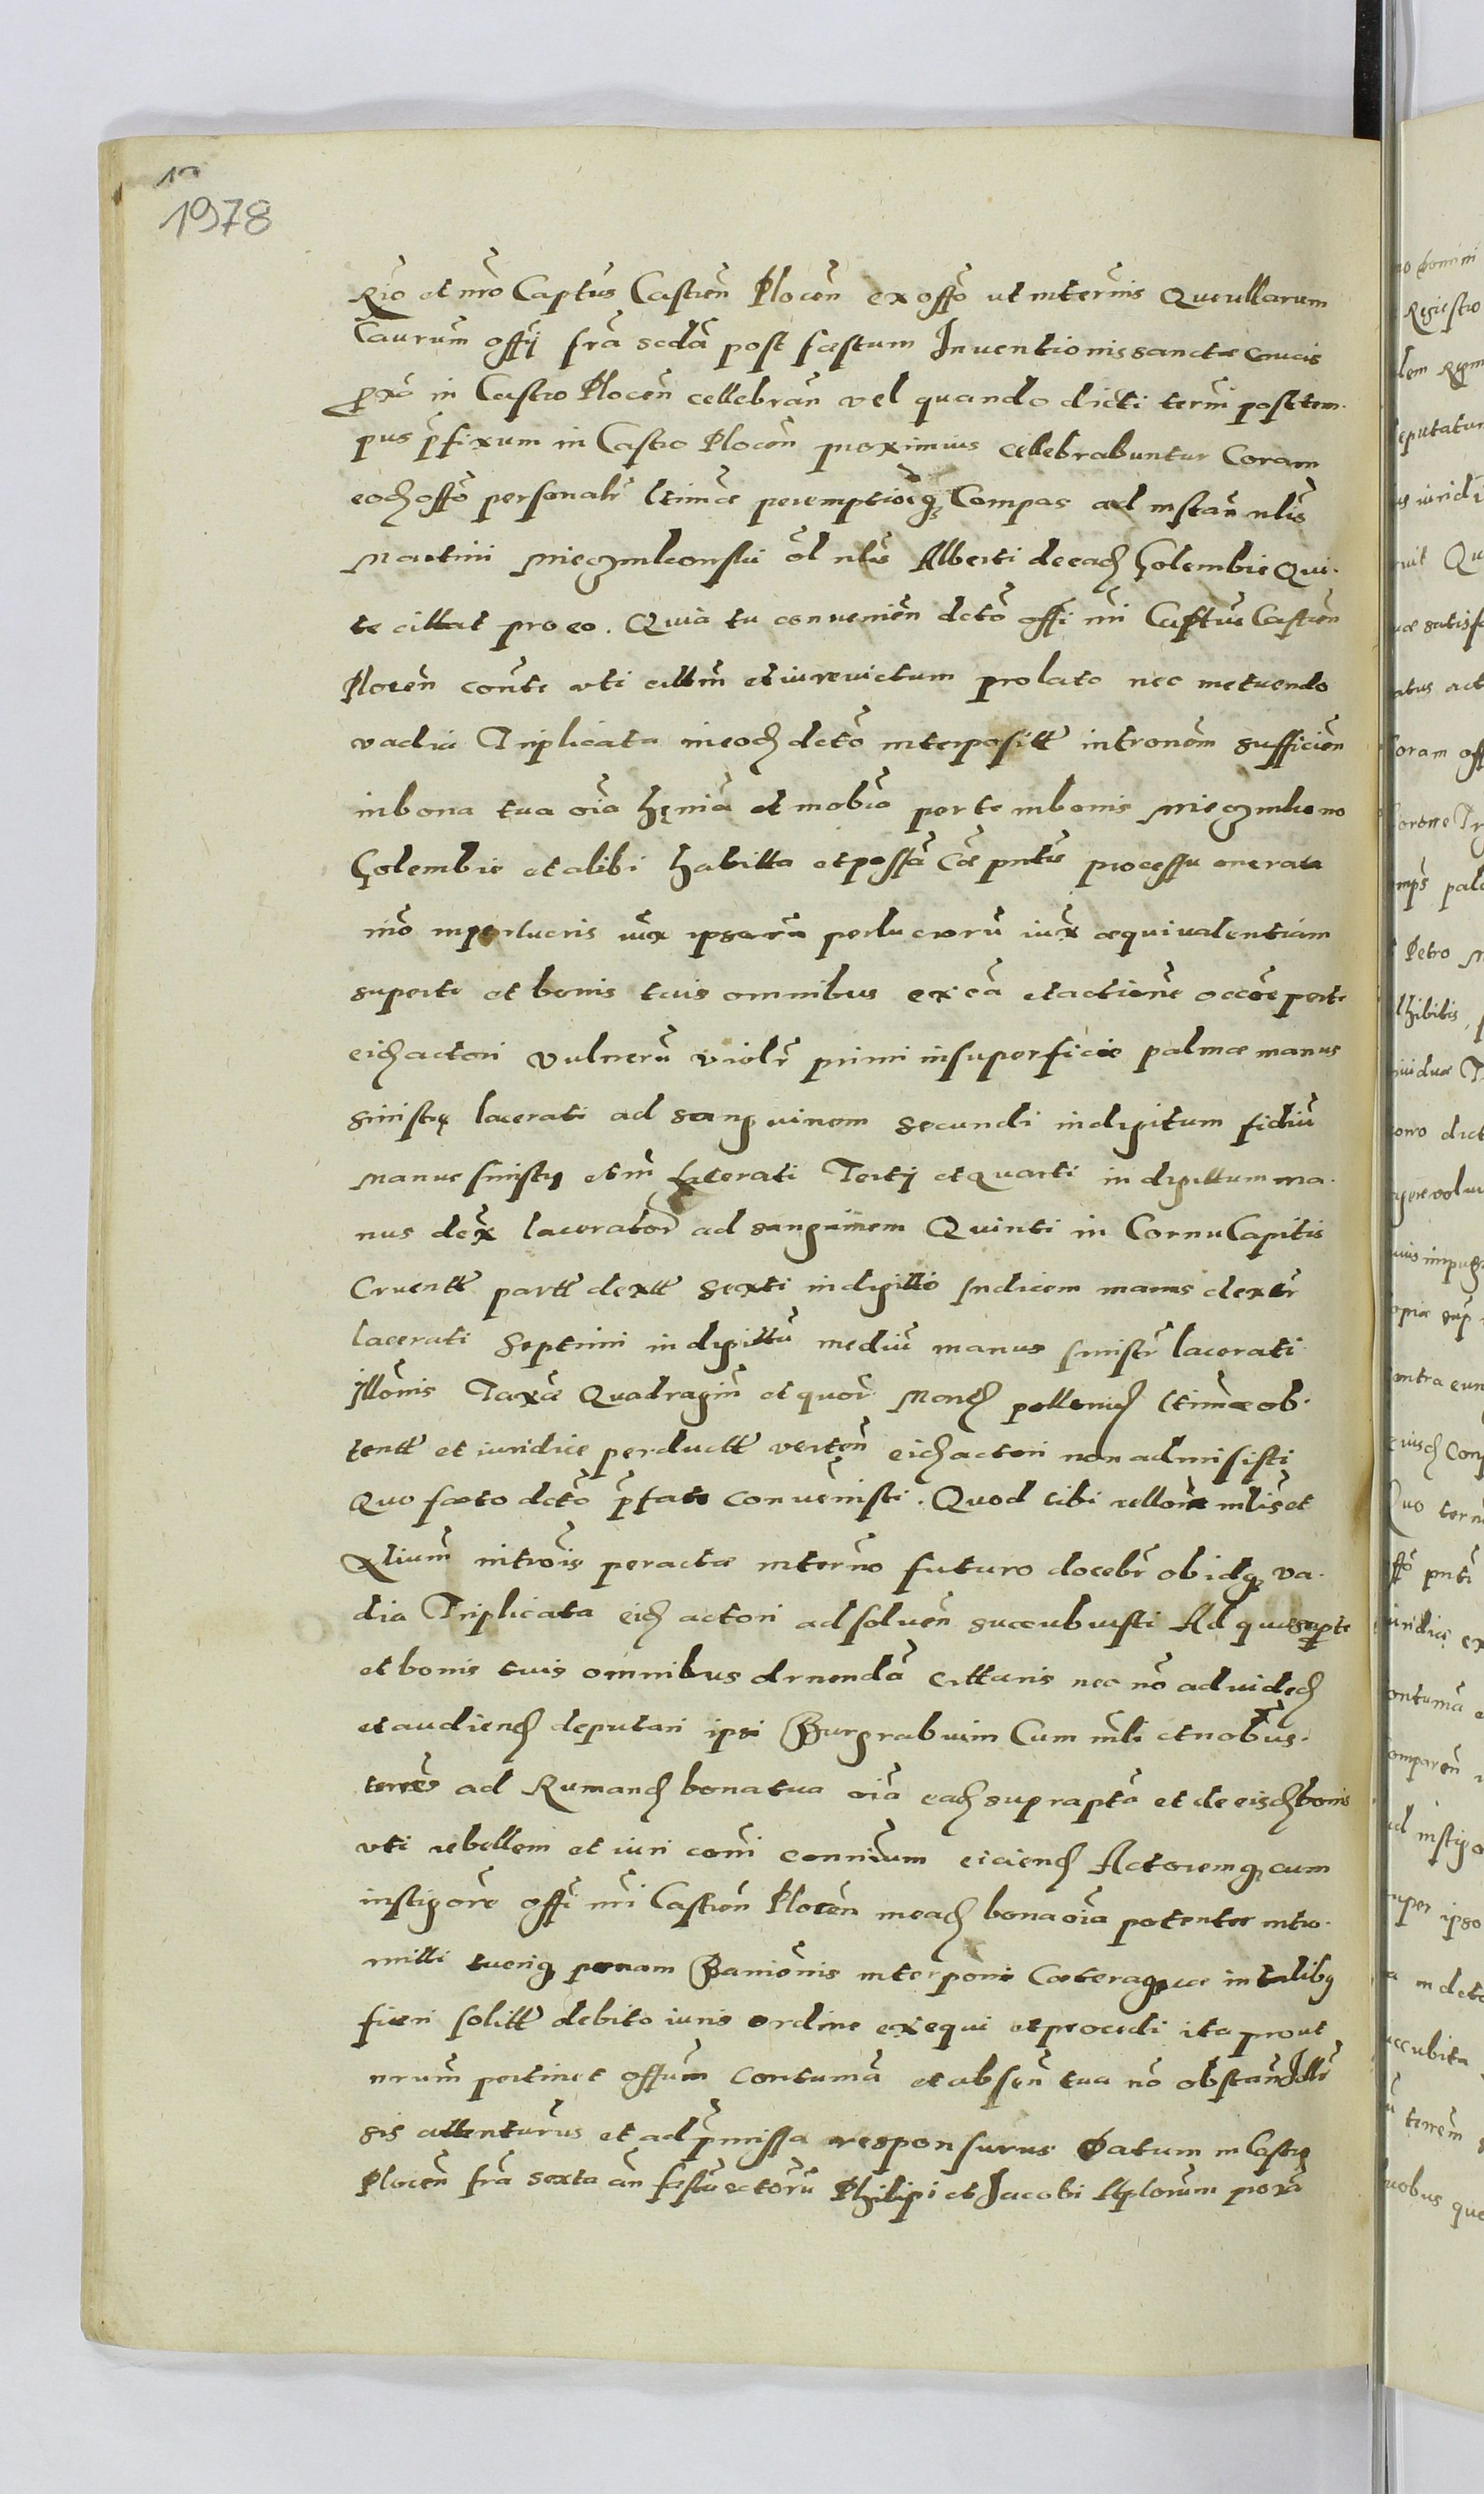 1978
Rio et nro Captus Castren Plocen ex offo ut in ternis Querellarum
Caurum offy fra scda post festum Inventionis sanctæ crucis
pxo in Castro Plocen cellebran vel quando dicti termi post tem-
pus pfixum in Castro Plocen proximius cellebrabuntur Coram
eod offo personalr ltimæ peremptiorieq Compas ad instan nlis
Martini ol nlis Alberti de ead Golembie Qui-
te cittat pro eo. Quia tu convenien dcto offi nri Captus Castren
Plocen conte vti cittm et iure victum prolato nec metuendo
vadia Triplicata in eod dcto interpositt intronem sufficien
in bona tua oia et mobia per te in bonis
Golembie et alibi habitta et possa Cæ pntis processu onerata
per lucris iux ipsarum per lucrorum iux æquivalentiam
super te et bonis tuis omnibus ex ca et actione occoe per te
eid actori vulneru violr primi in superficie palmæ manus
sinistrę lacerati ad sangvinem secundi in digitum fidiu
manus sinistrę etm Lacerati Terty et Quarti in digittum ma-
nus dex lacerator ad sanguinem Quinti in Cornu Capitis
Cruentt partt dextt sexti in digitto Indicem manus dextr
lacerati Septimi in digittu mediu manus sinistr lacerati
Illonis Taxæ Quadragin et quor March pollonich ltimæ ob-
tentt et iuridice perductt verten eid actori non admisisti
Quo facto dcto pfato convenisti. Quod tibi rellone mlis et
nltium introis peractæ in terno futuro docebr ob idq va-
dia Triplicata eid actori ad solven succubuisti Ad quæ super te
et bonis tuis omnibus drnenda cittaris nec no ad vidend
et audiend deputari ipsi Burgrabium Cum mli et nobus
terres ad Rumand bona tua oia ead suprapta et de eisd bonis
vti rebellem et iuri comi connium eiciend Actoremq cum
instigore offi nri Castren Plocen in ead bona oia potenter intro-
mitti tueriq pœnam Banionis interponi Cæteraque in talibq
fieri solitt debito iuris ordine exequi et procedi ita prout
nrum pertinet offum contuma et absen tua no obstan Illr
sis attenturus et ad pmissa responsurus Datum in Castro
Plocen fra sexta an festu sctoru Philipi et Jacobi Aplorum pora